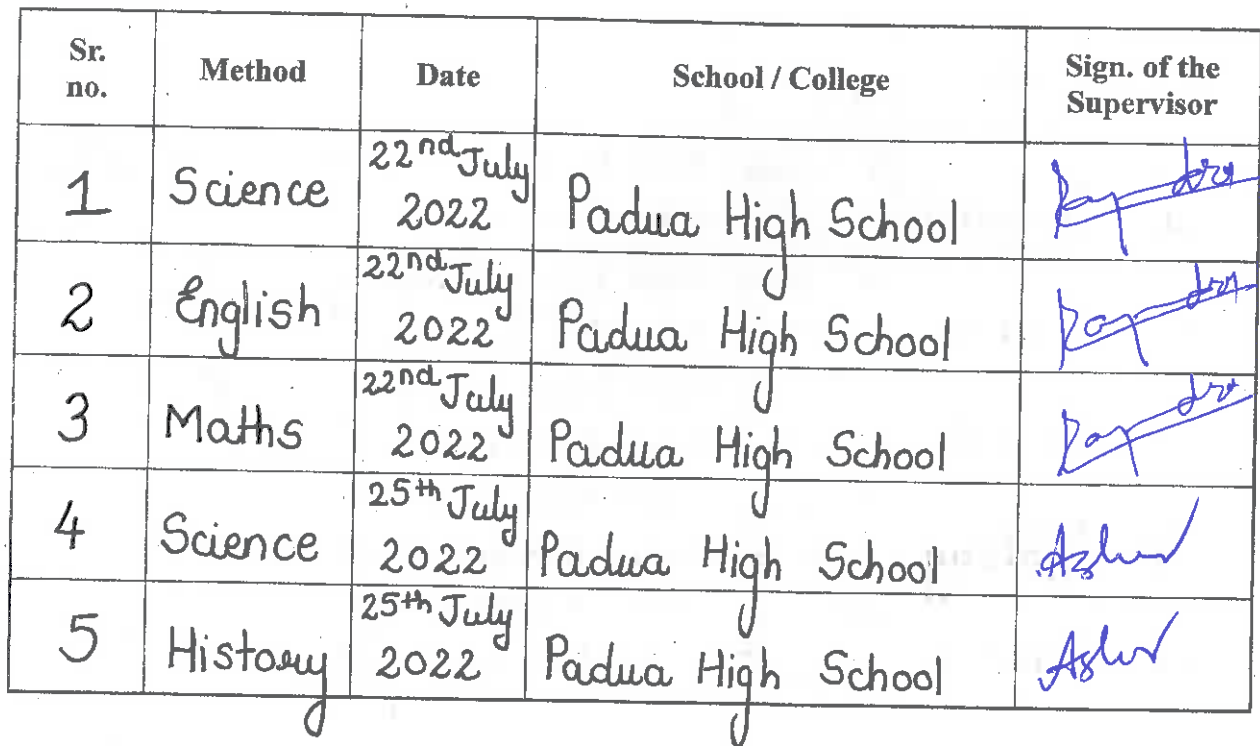 Sr. no. Method Date School / College Sign. of the Supervisor
1 Science 22nd July 2022 Padua High School
2 English 22nd July 2022 Padua High School
3 Maths 22nd July 2022 Padua High School
4 Science 25th July 2022 Padua High School
5 History 25th July 2022 Padua High School